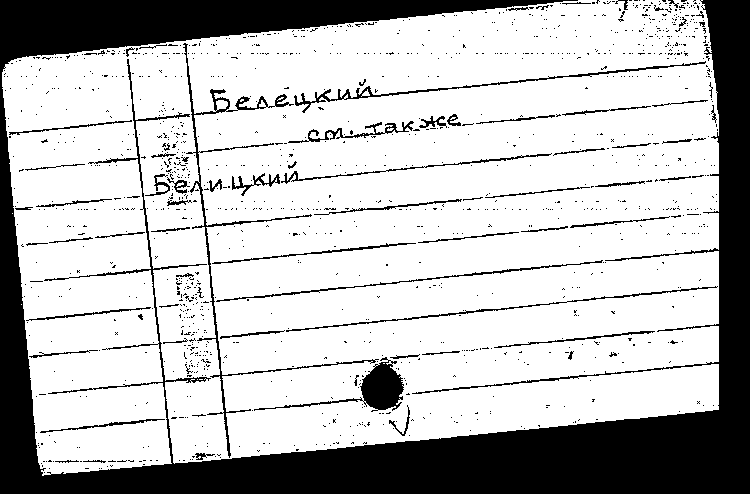 Белецкий
см. также
Белицкий